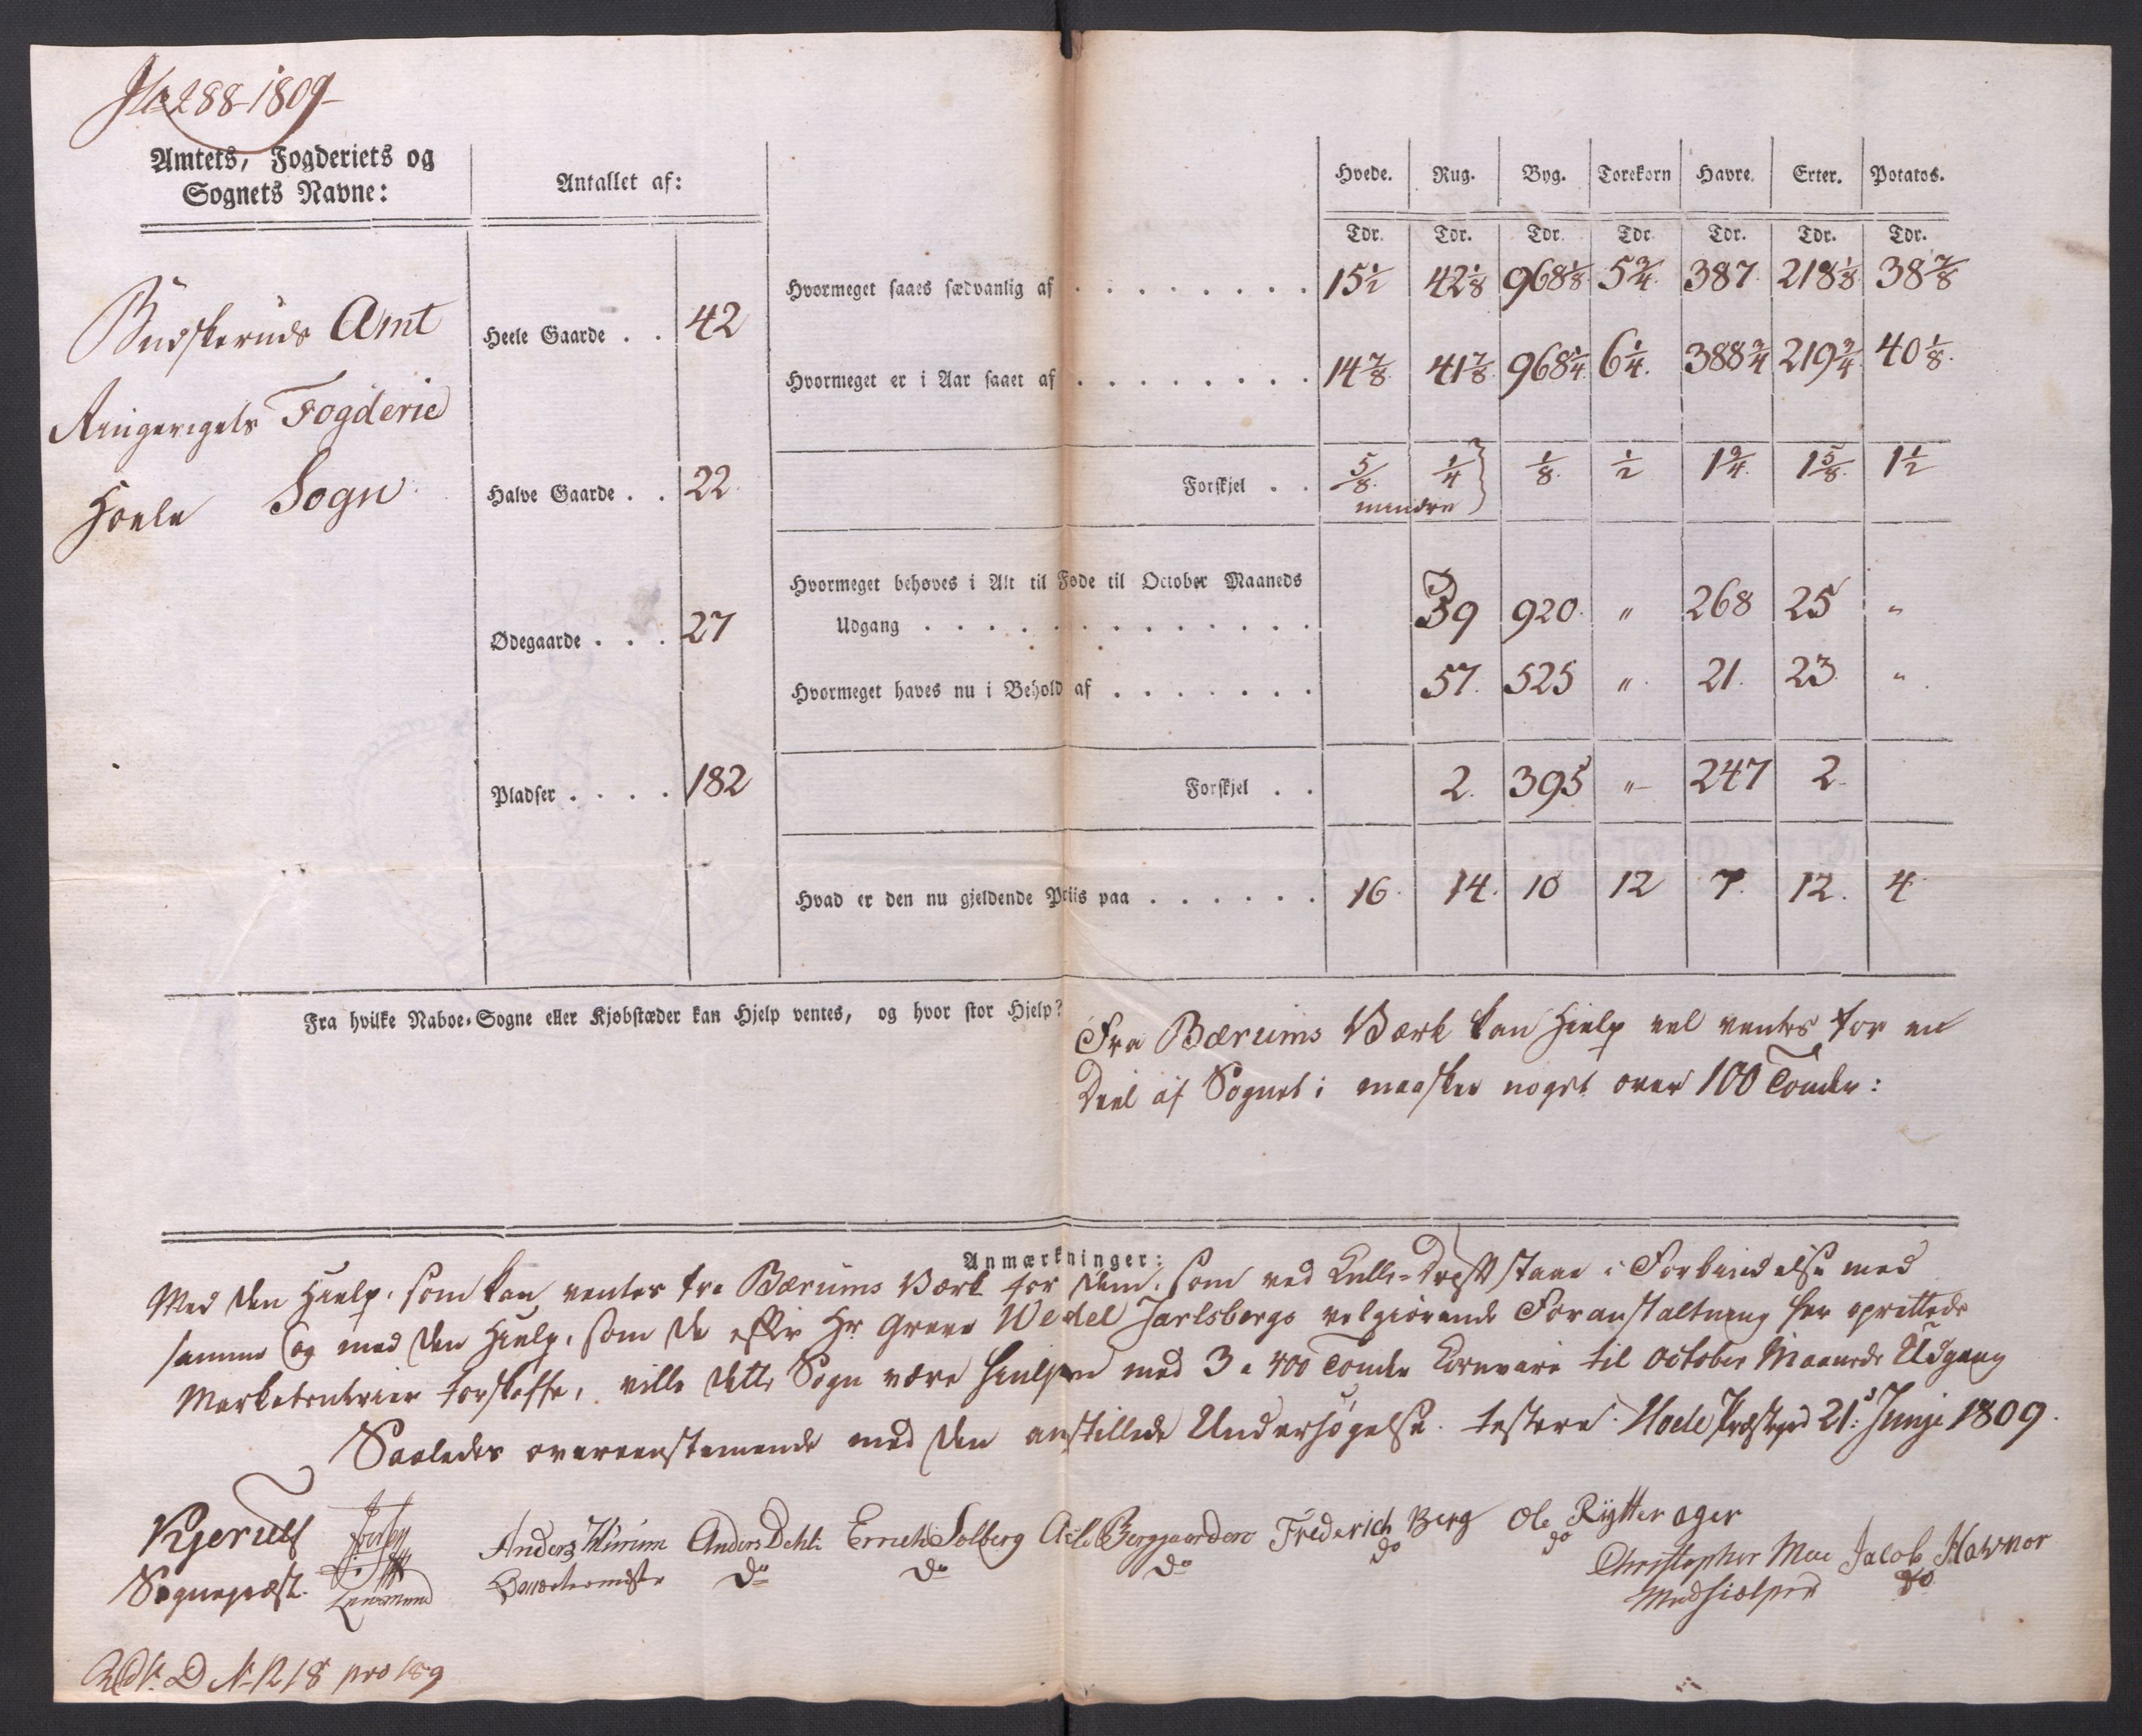 288-1809
Amtets, Fogderiets og
Sognets Navne:
Antallet af:
Hvede. Rug. Byg. Torekorn Havre. Erter. Potatos.
Tdr. Tdr. Tdr. Tdr. Tdr. Tdr. Tdr.
Buskeruds Amt
Ringerigets Fogderie
Hoele Sogn
Heele Gaarde . . 42
Halve Gaarde . . 22
Ødegaarde . . . 27
Pladser . . . . 182
Hvormeget saaes sædvanlig af . . . . . . . . 15½ 42⅛ 968⅛ 5¾ 387 218⅛ 38⅞
Hvormeget er i Aar saaet af . . . . . . . . 14⅞ 41⅞ 968¼ 6¼ 388¾ 219¾ 40⅛
Forskjel . . ⅝ ¼ } ⅛ ½ 1¾ 1⅝ 1½
mindre
Hvormeget behøves i Alt til Føde til October Maaneds
Udgang . . . . . . . . . . . . . 59 920 " 268 25 "
Hvormeget haves nu i Behold af . . . . . . . 57 525 " 21 23 "
Forskjel . . 2 395 " 247 2
Hvad er den nu gjeldende Priis paa . . . . . . 16 14 10 12 7 12 4
Fra hvilke Naboe-Sogne eller Kjøbstæder kan Hjelp ventes, og hvor stor Hjelp?
Fra Bærums Værk kan Hielp vel ventes for en
Deel af Sognet; maaskee noget over 100 Tønder:
Anmærkninger:
Med den Hielp, som kan ventes fra Bærums Værk for dem, som ved Kulle-Drift staae i Forbindelse med
samme og med den Hielp, som de efter Hr Greve Wedel Jarlsbergs velgiørende Foranstaltning her oprettede
Marketenterier forskaffe, ville dette Sogn være hiulpen med 3 a 400 Tønder Kornvare til October Maaneds Udgang
Saaledes overeenstemmende med den anstillede Undersøgelse. testere. Hole Præstegrd 21: Junji 1809.
Kjerulf Anders Anders Dehli Errich Solberg Frederich Berg Ole Rytterager
Sognepræst. Lensmand Qvartermester Do Do Do Do do
Christopher Moe Jacob Hawnor
Medhielper do
D No 1218 pro 189